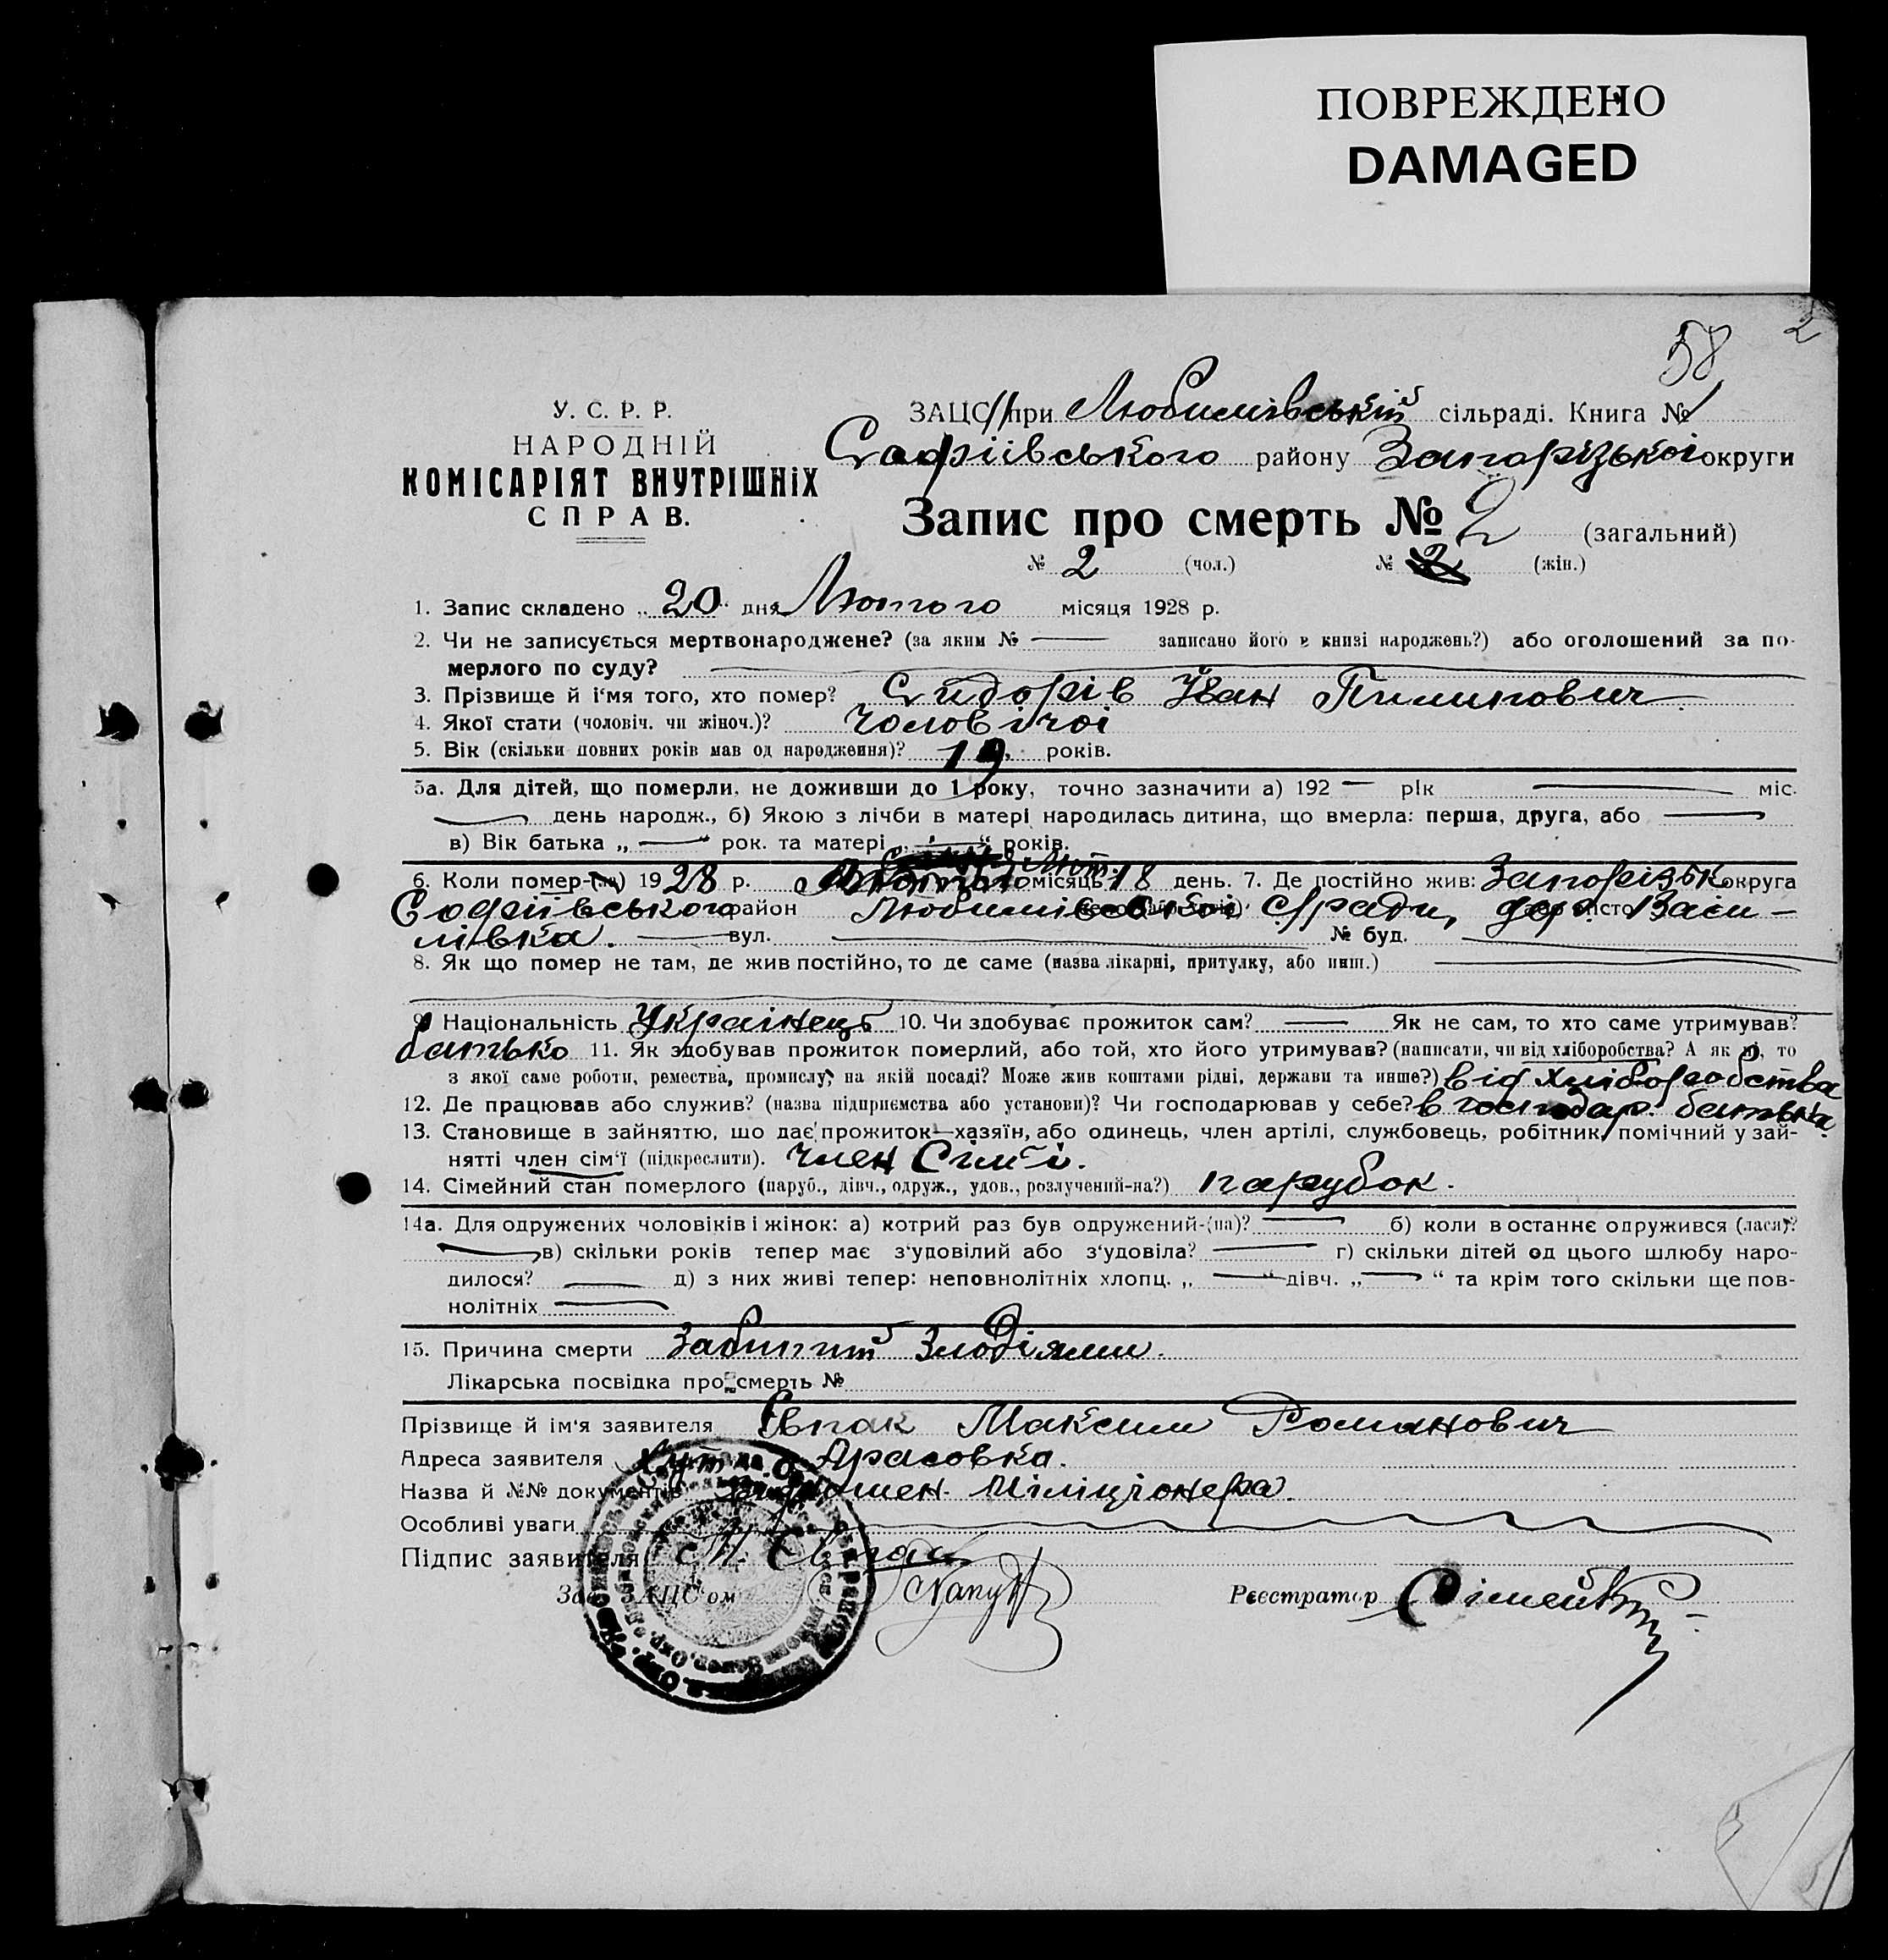 ПОВРЕЖДЕНО
DAMAGED
2
58
У. С. Р. Р.
НАРОДНІЙ
КОМІСАРІЯТ ВНУТРІШНІХ
СПРАВ.
ЗАЦС при Любимівській сільраді. Книга № 1
Софіївського району Запорізької округи
Запис про смерть № 2 (загальний)
№ 2 (чол.) № 2 (жін.)
1. Запис складено „ 20 “ дня Лютого місяця 1928 р.
2. Чи не записується мертвонароджене? (за яким № — записано його в книзі народжень?) або оголошений за по-
мерлого по суду?
3. Прізвище й ім'я того, хто помер? Сидорів Іван Пилипович
4. Якої стати (чоловіч. чи жіноч.)? Чоловічої
5. Вік (скільки повних років мав од народження)? 19 років.
5а. Для дітей, що померли, не доживши до 1 року, точно зазначити а) 192 — рік — міс.
— день народж., б) Якою з лічби в матері народилась дитина, що вмерла: перша, друга, або —
в) Вік батька „ — “ рок. та матері „ — “ років.
6. Коли помер-(ла) 1928 р. Лют. місяць 18 день. 7. Де постійно жив: Запорізьк округа
Софіївського район Любимівської С/ради, дер. Васи-
лівка. — вул. — № буд. —
8. Як що помер не там, де жив постійно, то де саме (назва лікарні, притулку, або инш.) —
9. Національність Українець 10. Чи здобуває прожиток сам? — Як не сам, то хто саме утримував?
батько 11. Як здобував прожиток померлий, або той, хто його утримував? (написати, чи від хліборобства? А як ні, то
з якої саме роботи, ремества, промислу, на якій посаді? Може жив коштами рідні, держави та инше?) від хліборобства
12. Де працював або служив? (назва підприємства або установи)? Чи господарював у себе? в господар. батька
13. Становище в зайняттю, що дає прожиток—хазяїн, або одинець, член артілі, службовець, робітник, помічний у зай-
нятті член сім'ї (підкреслити). Член Сім'ї.
14. Сімейний стан померлого (паруб., дівч., одруж., удов., розлучений-на?) парубок.
14а. Для одружених чоловіків і жінок: а) котрий раз був одружений-(на)? — б) коли в останнє одружився (лася)?
— в) скільки років тепер має з'удовілий або з'удовіла? — г) скільки дітей од цього шлюбу наро-
дилося? — д) з них живі тепер: неповнолітніх хлопц. „ — “ дівч. „ — “ та крім того скільки ще пов-
нолітніх —
15. Причина смерти Забитий Злодіями.
Лікарська посвідка про смерть №
Прізвище й ім'я заявителя Євпак Максим Романович
Адреса заявителя Хут. 
Назва й №№ документів Міліціонера.
Особливі уваги
Підпис заявителя М. Євпак
Зав. ЗАЦС'ом
Реєстратор